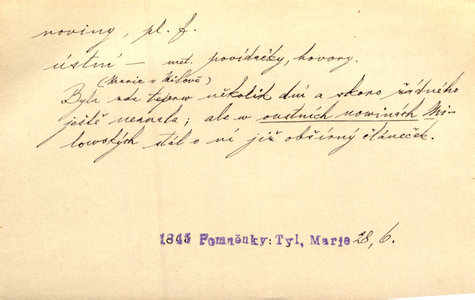 noviny, pl. f.
ústní — met. povídačky, hovory.
(Marie v Milově)
Byla zde teprw několik dní a skoro žádného
ještě neznala; ale w oustních nowinách Mi-
lowských stál o ní již obšírný článeček.
1845 Pomněnky: Tyl, Marje 28, 6.